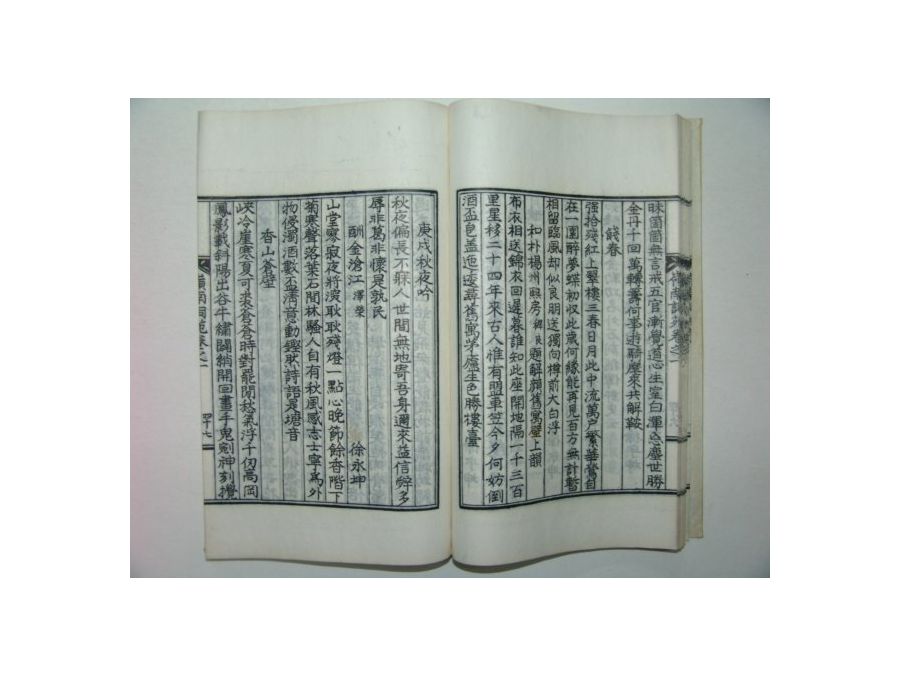 昧箇箇無言戒五官漸覺道心生室白渾忘塵世勝
金丹十回萬轉壽何事遊驂歷來共解鞍
餞春
强拾殘紅上翠樓三春日月此中流萬戶繁華鶯自
在一園醉夢蝶初收此歲何緣能再見百方無計暫
相留臨風却似良朋送獨向樽前大白浮
和朴楊州 題解顏舊寓壁上韻
布衣相送錦衣回遲暮誰知此座開地隔一千三百
里星移二十四年來古人惟有盟車笠今夕何妨倒
酒盃皂盖迤逶尋舊寓茅廬生色勝樓臺
庚戌秋夜吟
秋夜偏長不寐人世間無地寄吾身邇來益信弊多
辱非葛非懷是孰民
酬金滄江澤榮 徐永坤
山堂寥寂夜將演耿耿殘燈一點心晚節餘香階下
菊寒聲落葉石間林騷人自有秋風感志士寧爲外
物侵濁酒數盃淸意動鏗然詩語是塘音
香山蒼壁
峽冷崖寒夏可裘蒼蒼時對罷閒愁氣浮千仞高岡
鳳影載斜陽出谷牛繡闢綃開回畫手鬼剜神刻攪